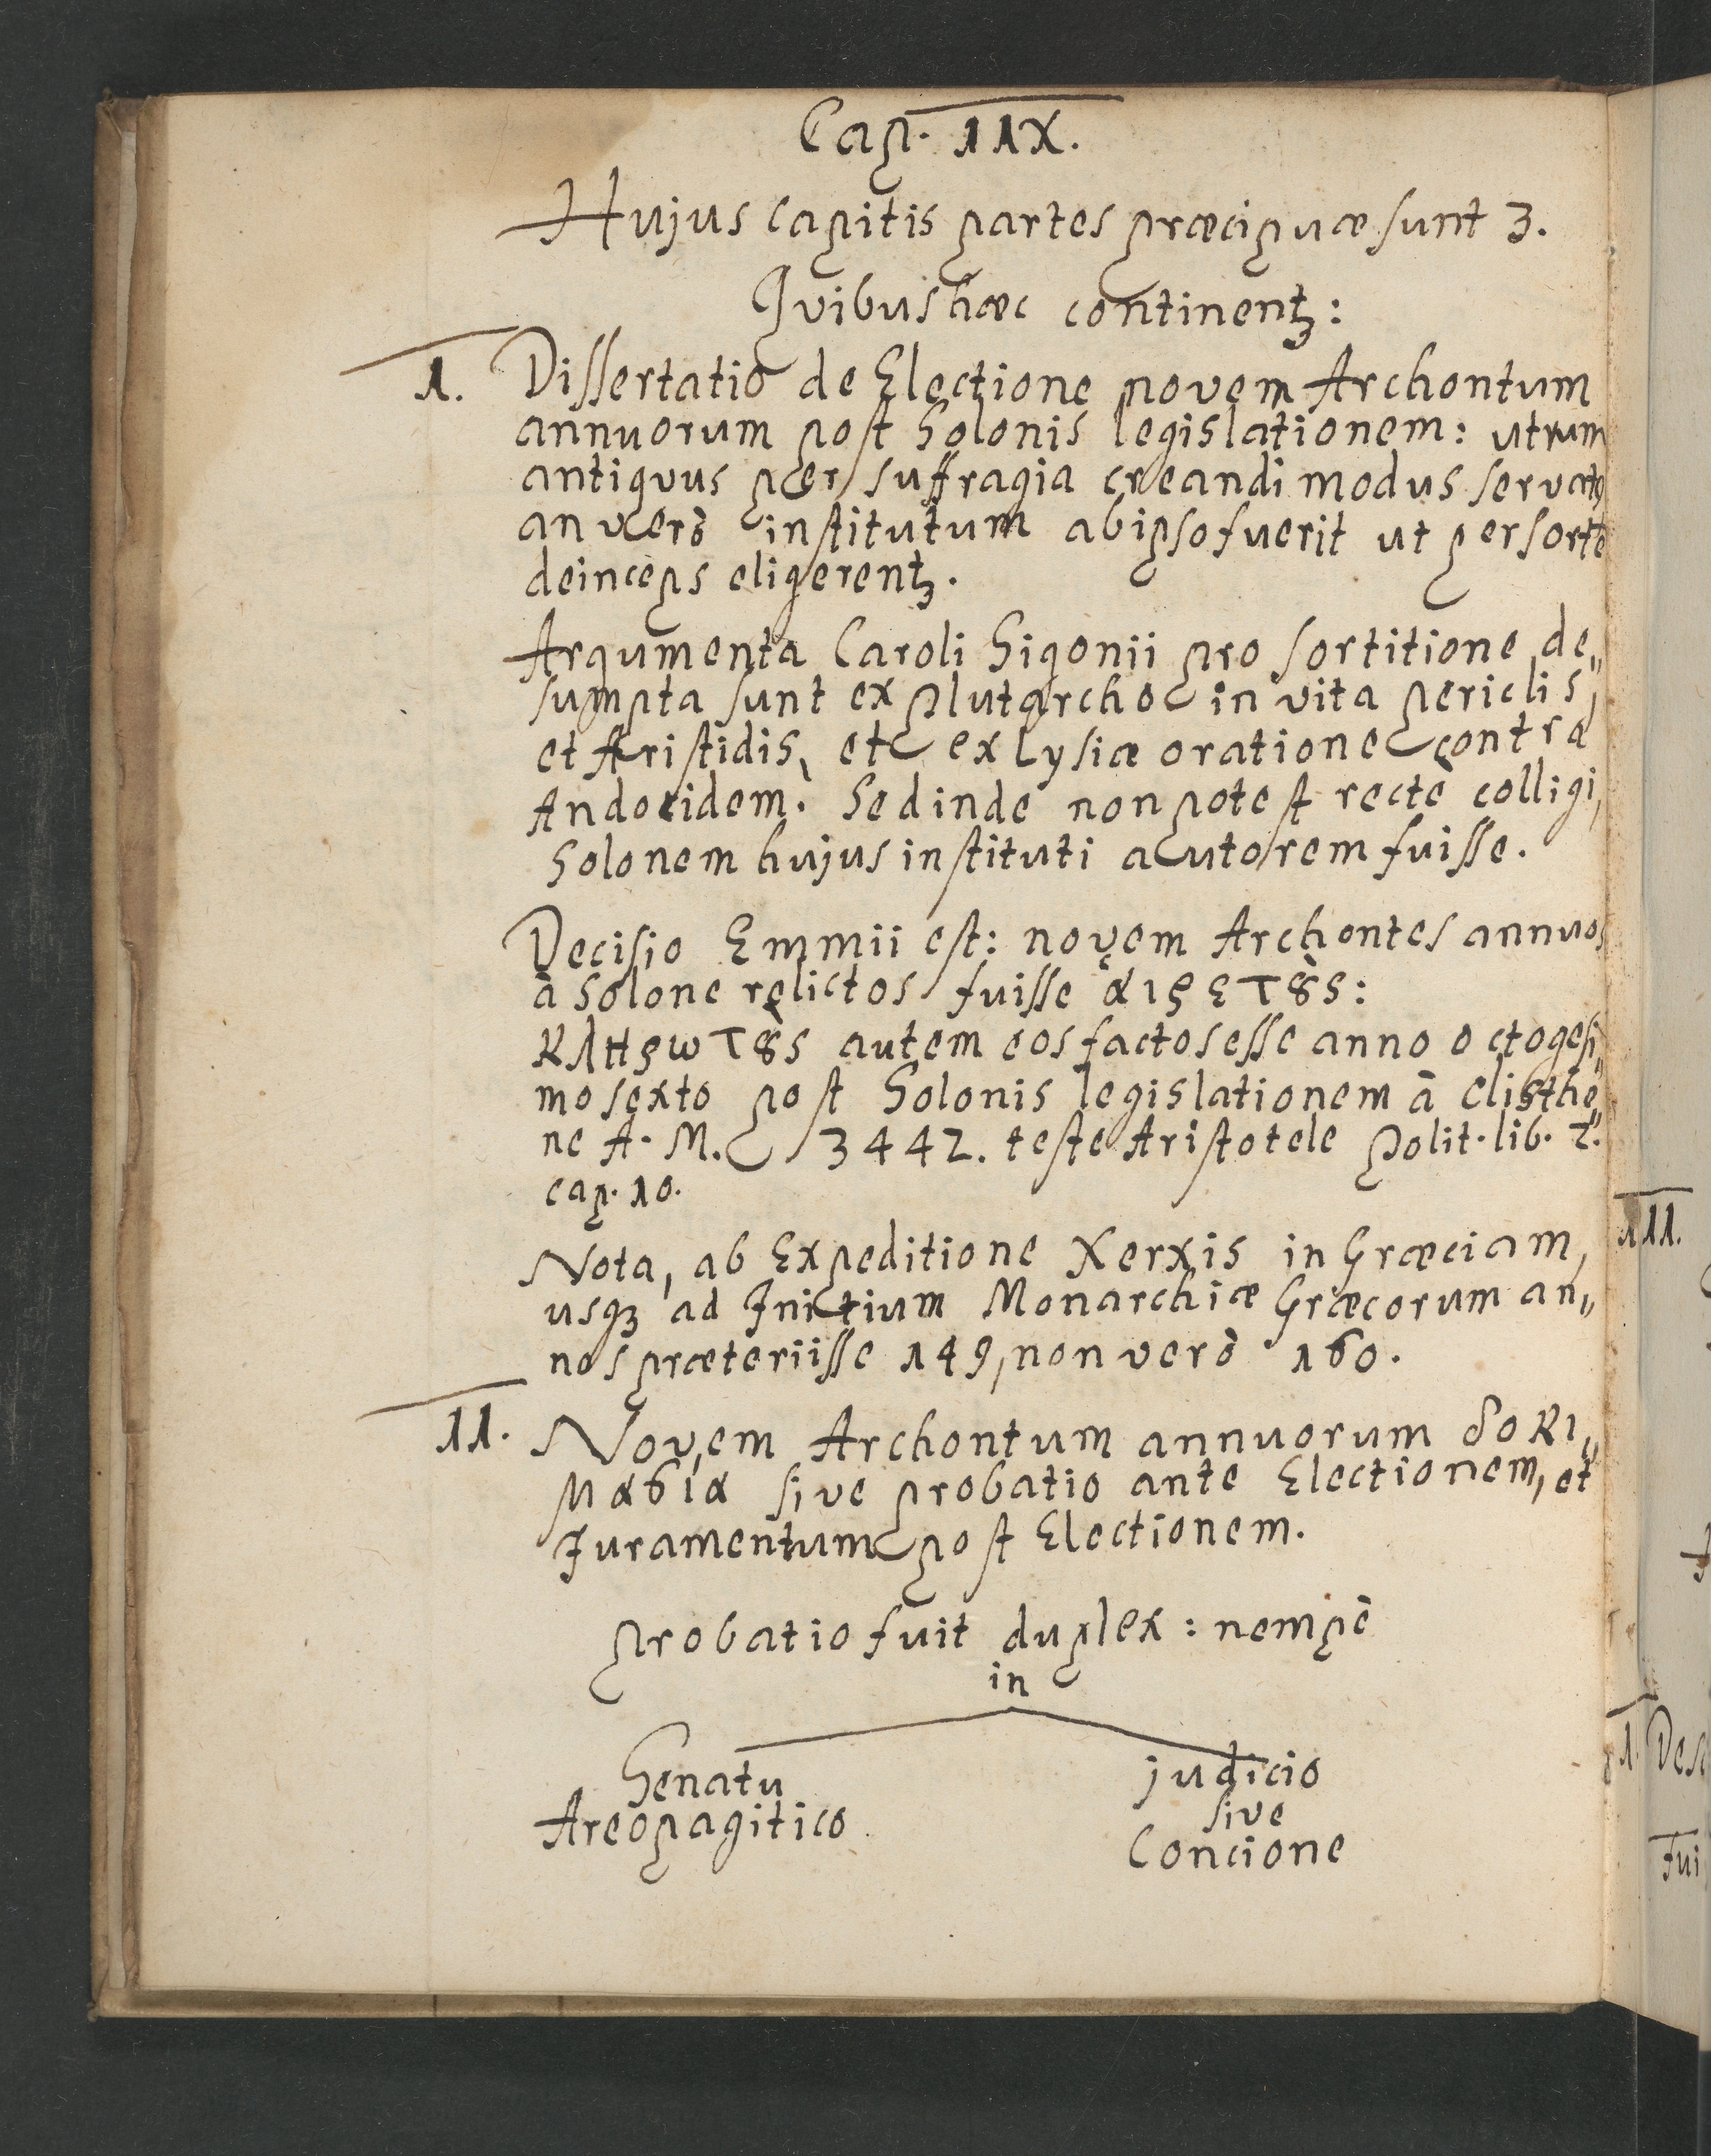 Cap. IIX.
Hujus capitis partes præcipuæ sunt 3.
Qvibus hæc continentꝫ:
I. Dissertatio de Electione novem Archontum
annuorum post Solonis legislationem: utrum
antiqvus per suffragia creandi modus servatꝰ
an verò institutum ab ipso fuerit ut per sorte
deinceps eligerentꝫ.
Argumenta Caroli Sigonii pro sortitione de„
sumpta sunt ex Plutarcho in vita Periclis,
et Aristidis, et ex Lysiæ oratione contra
Andocidem. Sed inde non potest rectè colligi,
Solonem hujus instituti autorem fuisse.
Decisio Emmii est: novem Archontes annuos
à Solone relictos fuisse αἱρετȣ̀ς:
κληρωτȣ̀ς autem eos factos esse anno octogesi„
mo sexto post Solonis legislationem à Clisthe„
ne A. M. 3442. teste Aristotele Polit. lib. 2.
cap. 10.
Nota, ab Expeditione Xerxis in Græciam,
usqꝫ ad Initium Monarchiæ Græcorum an„
nos præteriisse 149, non verò 160.
II. Novem Archontum annuorum δοκι„
μασία sive probatio ante Electionem, et
Juramentum post Electionem.
Probatio fuit duplex: nempè
in
Senatu
Areopagitico.
judicio
sive
Concione
III.
I. Des
Fui